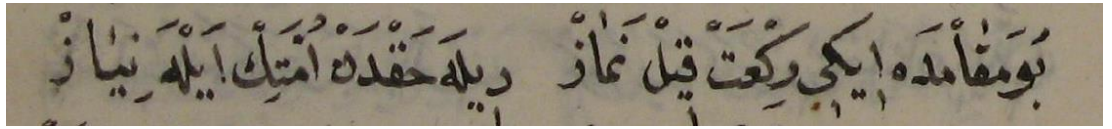 بُو مَقَامْدَه اِيكِي رَكْعَتْ قِيلْ نَمَازْ   دِيلَه حَقْدَنْ اُمَّتِكْ اَيْلَه نِيَازْ